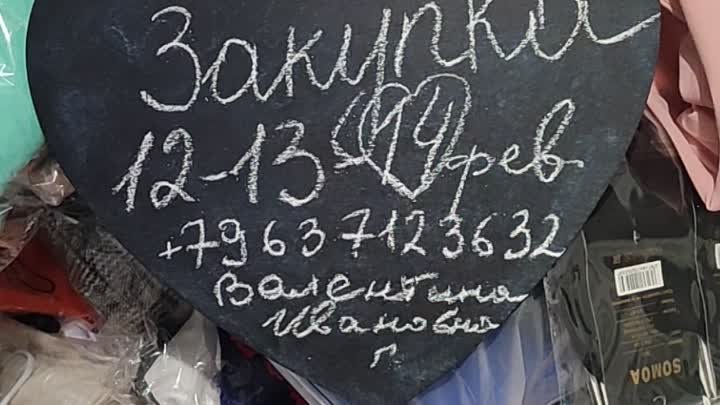 Закупки
12-13-14 фев
+79637123632
Валентина
Ивановна
г
SOMOA